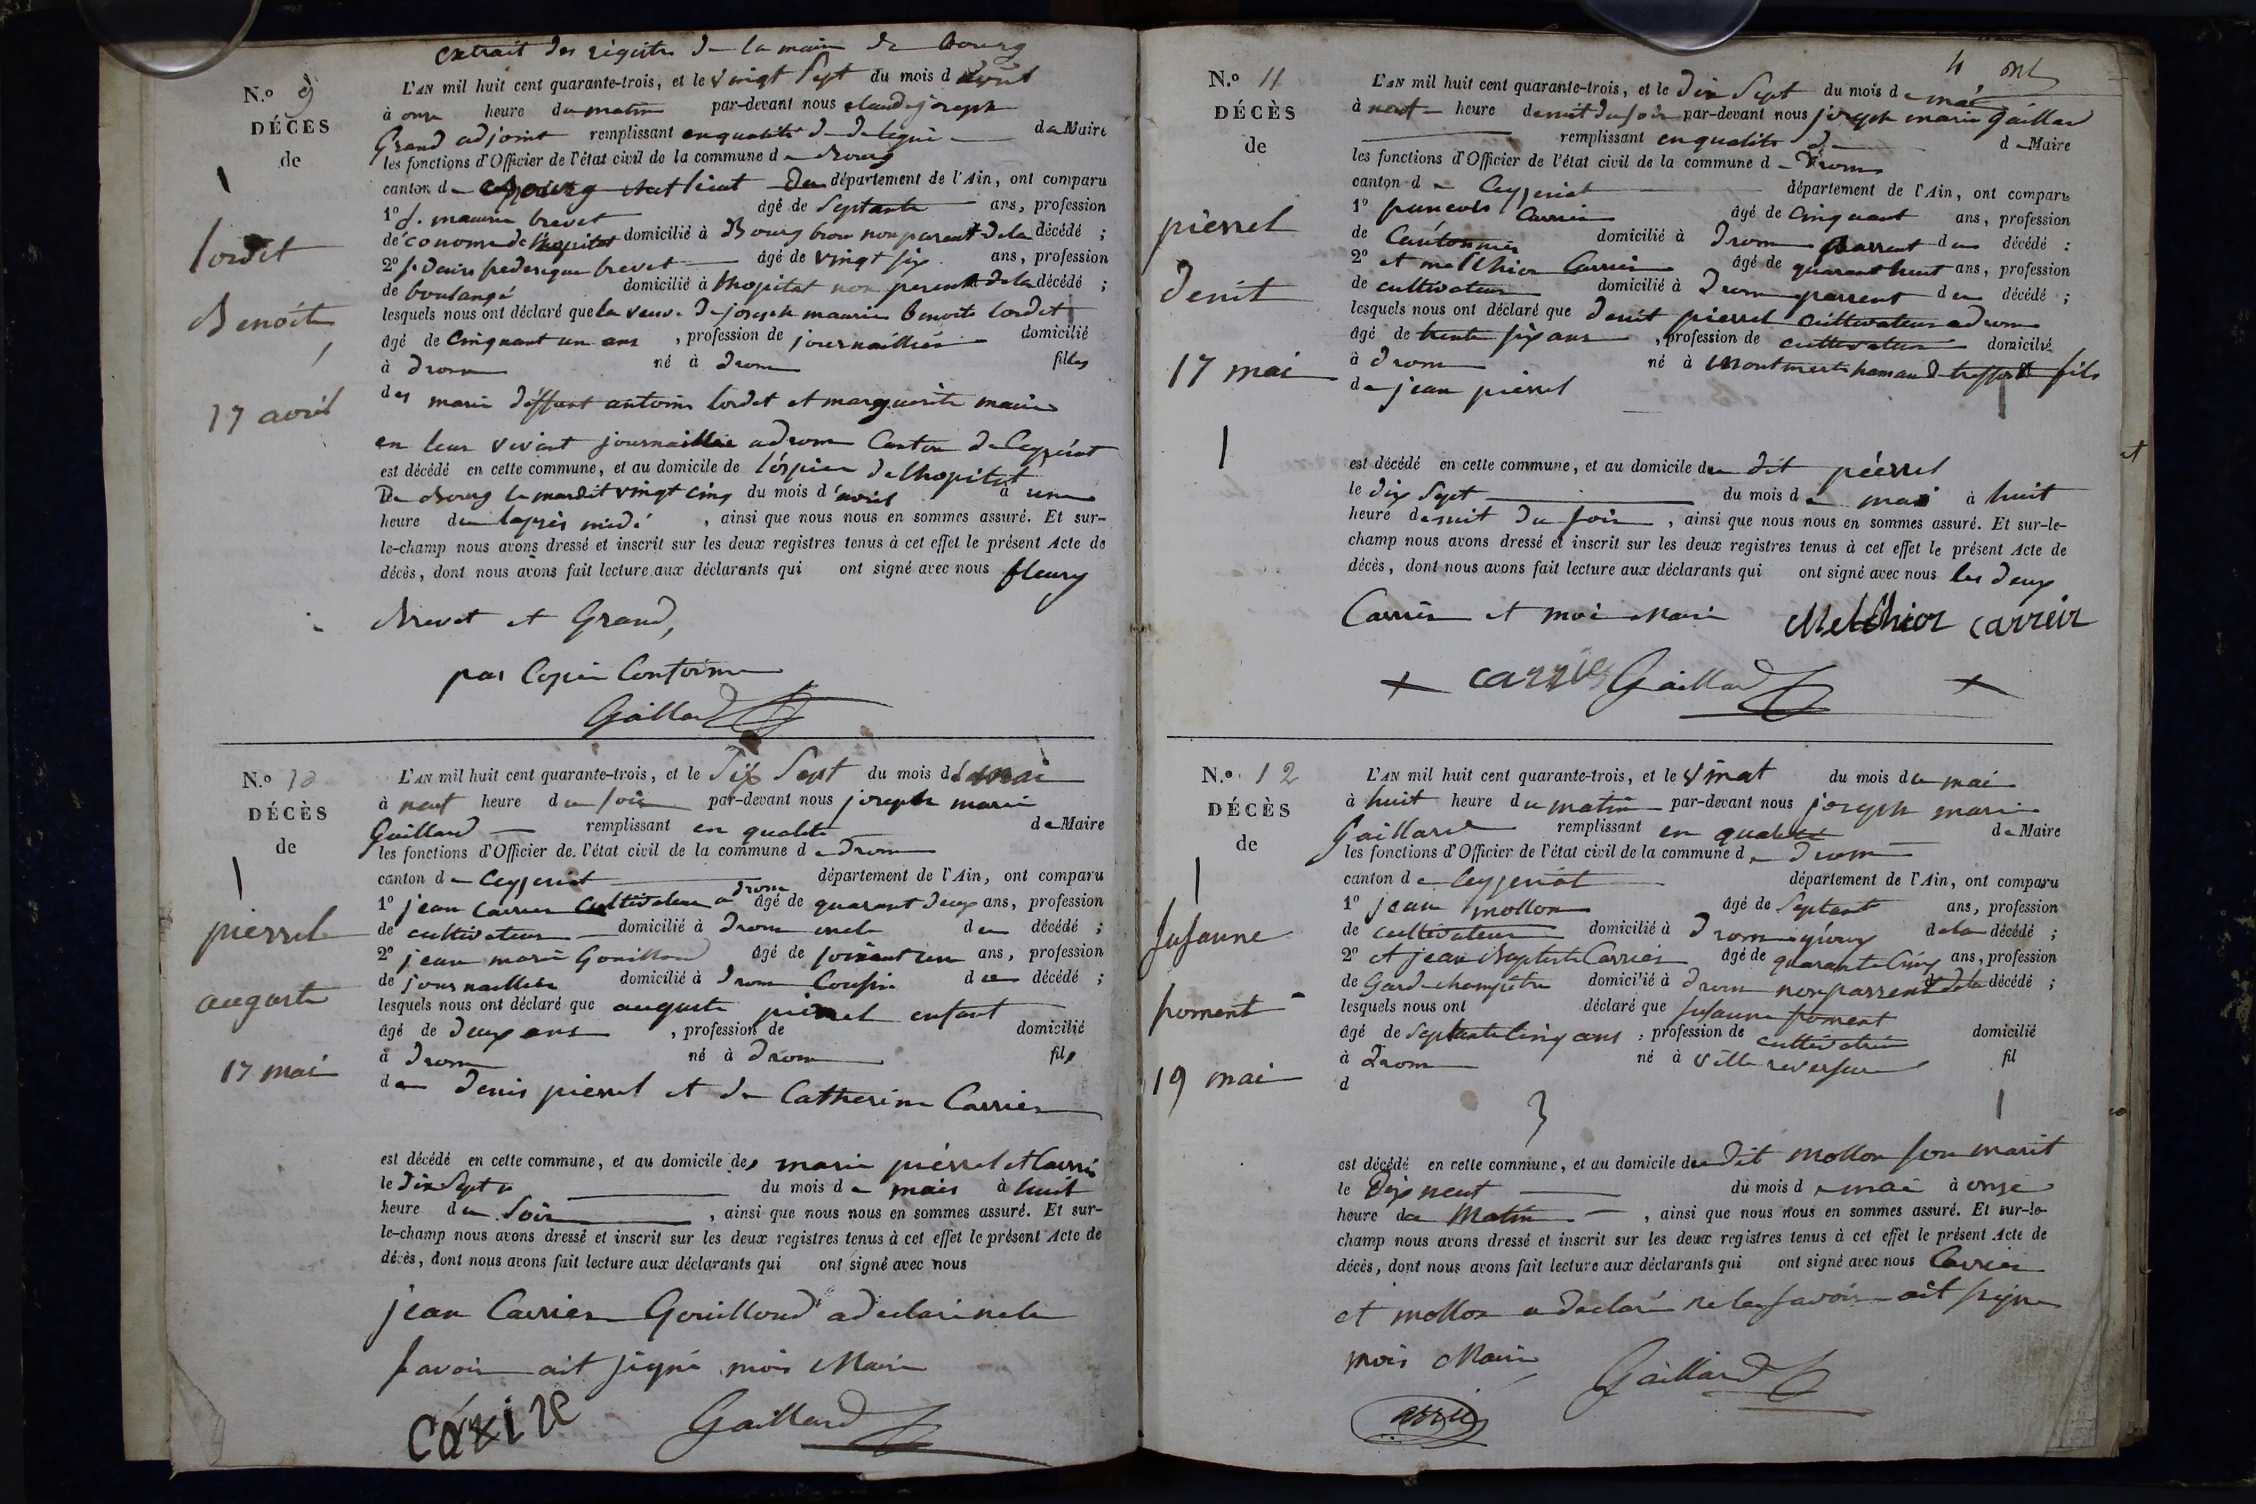 extrait des régistre de la mairie de bourg
N.º 9
DÉCÈS
de
lordet
Benoite
17 avril
L'AN mil huit cent quarante-trois, et le vingt Sept du mois d avril
à onze heure du matin par-devant nous claude joseph
Grand adjoint remplissant en qualité de de Maire
les fonctions d'Officier de l'état civil de la commune de Bourg
canton de Bourg département de l'Ain, ont comparu
1º brevet âgé de Septante ans, profession
d'économe de l'hopital domicilié à Bourg non parent de la décédé ;
2º brevet âgé de vingt six ans, profession
de boulangé domicilié à lhopital non parent de la décédé ;
lesquels nous ont déclaré que la veuve de joseph maurin benoite lordet
âgé de Cinquant un ans , profession de journaillière domicilié
à drom né à drom filles
des marie déffunt antoine lordet et marguerite maurin
en leur vivant journaillié a drom Canton de Ceyzériat
est décédé en cette commune, et au domicile de l'óspice de lhopital
De Bourg le mardit vingt cinq du mois d'avril à une
heure de laprès midé , ainsi que nous nous en sommes assuré. Et sur-
le-champ nous avons dressé et inscrit sur les deux registres tenus à cet effet le présent Acte de
décès, dont nous avons fait lecture aux déclarants qui ont signé avec nous fleury
Brevet et Grand,
par Copie Conforme
Gaillard
N.º 10
DÉCÈS
de
pierrel
auguste
17 mai
L'AN mil huit cent quarante-trois, et le Dix Sept du mois de mai
à neuf heure du soir par-devant nous joseph marie
Gaillard remplissant en qualité de Maire
les fonctions d'Officier de l'état civil de la commune de Drom
canton de Ceyzeriat département de l'Ain, ont comparu
1º jean Carrier Cultivateur a drom âgé de quarant deux ans, profession
de cultivateur domicilié à drom oncle du décédé ;
2º jean marie Gouilloud âgé de soixant un ans, profession
de journaillier domicilié à drom Cousin du décédé ;
lesquels nous ont déclaré que auguste pierrel enfant
âgé de deux ans , profession de domicilié
à drom né à drom fils
de denis pierrel et de Catherine Carrier
est décédé en cette commune, et au domicile des marie pierrel et Carrie
le dix Sept du mois de mais à huit
heure du Soir , ainsi que nous nous en sommes assuré. Et sur-
le-champ nous avons dressé et inscrit sur les deux registres tenus à cet effet le présent Acte de
décès, dont nous avons fait lecture aux déclarants qui ont signé avec nous
jean Carrier Gouilloud a declaré ne le
savoir ait signé mois Maire
Gaillard
N.º 11
DÉCÈS
de
pierrel
denit
17 mai
L'AN mil huit cent quarante-trois, et le Dix Sept du mois de mai
à neuf heure de nuit du soir par-devant nous joseph marie Gaillard
remplissant en qualité de Maire
les fonctions d'Officier de l'état civil de la commune de Drom
canton de Ceyzeriat département de l'Ain, ont comparu
1º francois Carrier âgé de Cinquant ans, profession
de Cantonnier domicilié à Drom parrent du décédé ;
2º et melchior Carrier âgé de quarant huit ans, profession
de cultivateur domicilié à Drom parrent du décédé ;
lesquels nous ont déclaré que denit pierrel cultivateur a drom
âgé de trente six ans , profession de cultivateur domicilié
à drom né à fils
de jean pierrel
est décédé en cette commune, et au domicile du dit piérrel
le dix Sept du mois de mai à huit
heure de nuit du soir , ainsi que nous nous en sommes assuré. Et sur-le-
champ nous avons dressé et inscrit sur les deux registres tenus à cet effet le présent Acte de
décès, dont nous avons fait lecture aux déclarants qui ont signé avec nous les deux
Carrier et moi Maire Melchior carreir
Gaillard
N.º 12
DÉCÈS
de
susanne
poment
19 mai
L'AN mil huit cent quarante-trois, et le vinat du mois de mai
à huit heure du matin par-devant nous joseph marie
Gaillard remplissant en qualité de Maire
les fonctions d'Officier de l'état civil de la commune de drom
canton de Ceyzeriat département de l'Ain, ont comparu
1º jean mollon âgé de Septant ans, profession
de cultivateur domicilié à drom de la décédé ;
2º et jean Baptiste Carrier âgé de quarante Cinq ans, profession
de Garde champêtre domicilié à drom non parrent de la décédé ;
lesquels nous ont déclaré que susanne poment
âgé de Septante Cinq ans , profession de cultivatrice domicilié
à drom né à ville reversure fil
d
est décédé en cette commune, et au domicile du dit mollon son marit
le Dix neuf du mois de mai à onze
heure du Matin , ainsi que nous nous en sommes assuré. Et sur-le-
champ nous avons dressé et inscrit sur les deux registres tenus à cet effet le présent Acte de
décès, dont nous avons fait lecture aux déclarants qui ont signé avec nous Carrier
et mollon a declaré ne le savoir ait signe
mois Maire
Gaillard